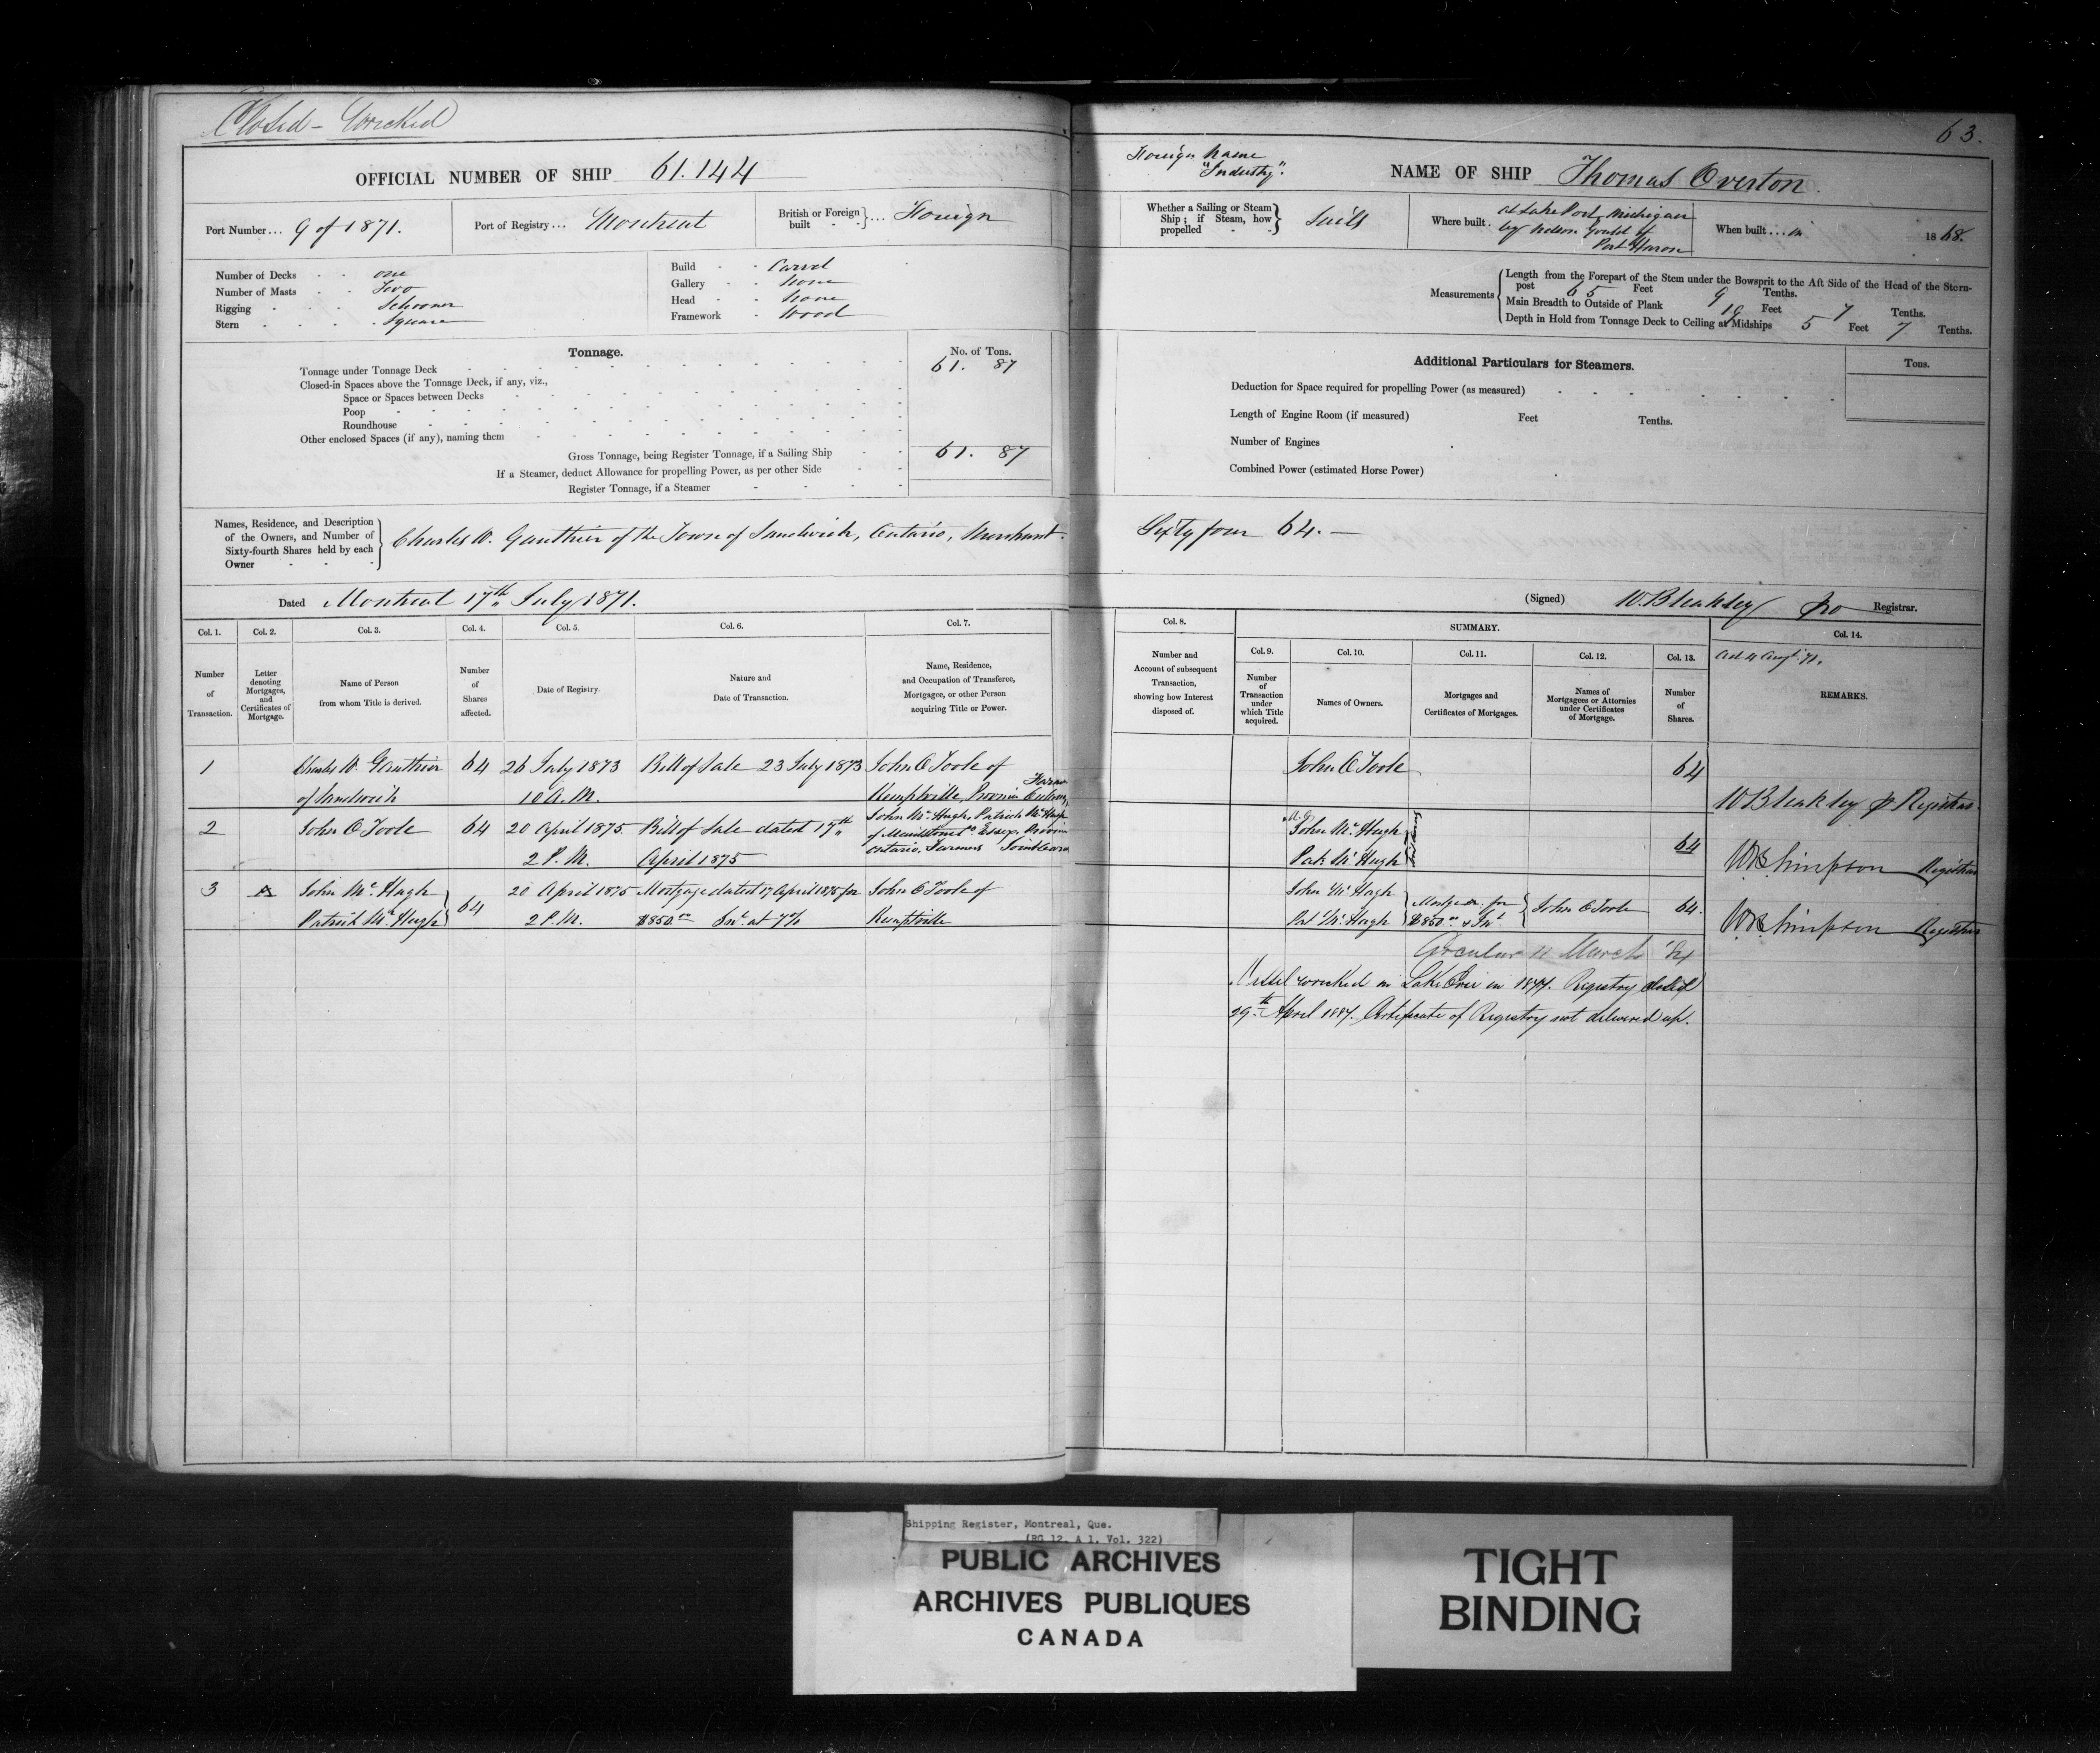 Closed - Wrecked
OFFICIAL NUMBER OF SHIP 61.144
Port Number... 9 of 1871.
Port of Registry... Montreal
British or Foreign built }... Foreign
Number of Decks - - one
Number of Masts - - Two
Rigging - - Schooner
Stern - - Square
Build - - Carvel
Gallery - - None
Head - - None
Framework - Wood
Tonnage.
No. of Tons.
Tonnage under Tonnage Deck 61. 87
Closed-in Spaces above the Tonnage Deck, if any, viz.,
Space or Spaces between Decks
Poop
Roundhouse
Other enclosed Spaces (if any), naming them
Gross Tonnage, being Register Tonnage, if a Sailing Ship 61. 87
If a Steamer, deduct Allowance for propelling Power, as per other Side
Register Tonnage, if a Steamer
Names, Residence, and Description
of the Owners, and Number of
Sixty-fourth Shares held by each
Owner
Charles W. Gauthier of the Town of Sandwich, Ontario, Merchant.
Dated Montreal 17th July 1871.
Col. 1.
Number
of
Transaction.
Col. 2.
Letter
denoting
Mortgages,
and
Certificates of
Mortgage.
Col. 3.
Name of Person
from whom Title is derived.
Col. 4.
Number
of
Shares
affected.
Col. 5.
Date of Registry.
Col. 6.
Nature and
Date of Transaction.
Col. 7.
Name, Residence,
and Occupation of Transferee,
Mortgagee, or other Person
acquiring Title or Power.
1 Charles W. Gauthier 64 26 July 1873 Bill of Sale 23 July 1873 John O'Toole of
of Sandwich 10 A.M. Kemptville, Province Ontario, Farmer
2 John O'Toole 64 20 April 1875 Bill of Sale dated 17th John McHugh, Patrick McHugh
2 P.M. April 1875 of Maidstone Co. Essex, Province
Ontario. Farmers Joint
3 A John McHugh 64 20 April 1875 Mortgage dated 17 April 1875 for John O'Toole of
Patrick McHugh 2 P.M. $850.00 Int. at 7% Kemptville
63.
Foreign Name
"Industry".
NAME OF SHIP Thomas Overton.
Whether a Sailing or Steam
Ship; if Steam, how
propelled
Sails
Where built. at Lake Port, Michigan
by Nelson Gould of
Port Huron
When built... in 1868.
Measurements
Length from the Forepart of the Stem under the Bowsprit to the Aft Side of the Head of the Stern-
post 65 Feet 9 Tenths.
Main Breadth to Outside of Plank 19 Feet 7 Tenths.
Depth in Hold from Tonnage Deck to Ceiling at Midships 5 Feet 7 Tenths.
Additional Particulars for Steamers.
Tons.
Deduction for Space required for propelling Power (as measured)
Length of Engine Room (if measured) Feet Tenths.
Number of Engines
Combined Power (estimated Horse Power)
Sixty four 64. —
(Signed) W. Bleakley pro Registrar.
Col. 8.
Number and
Account of subsequent
Transaction,
showing how Interest
disposed of.
SUMMARY.
Col. 9.
Number
of
Transaction
under
which Title
acquired.
Col. 10.
Names of Owners.
Col. 11.
Mortgages and
Certificates of Mortgages.
Col. 12.
Names of
Mortgagees or Attornies
under Certificates
of Mortgage.
Col. 13.
Number
of
Shares.
Col. 14.
REMARKS.
John O'Toole 64
W Bleakley p Registrar
John McHugh
Pat. McHugh 64
WB Simpson Registrar
John McHugh Mortge. for John O'Toole 64.
Pat McHugh $850.00 & Int.
WB Simpson Registrar
Circular 11 March '84
Vessel wrecked on Lake Erie in 1877. Registry closed
29th April 1884. Certificate of Registry not delivered up.
Shipping Register, Montreal, Que.
(RG 12, A 1, Vol. 322)
PUBLIC ARCHIVES
ARCHIVES PUBLIQUES
CANADA
TIGHT
BINDING